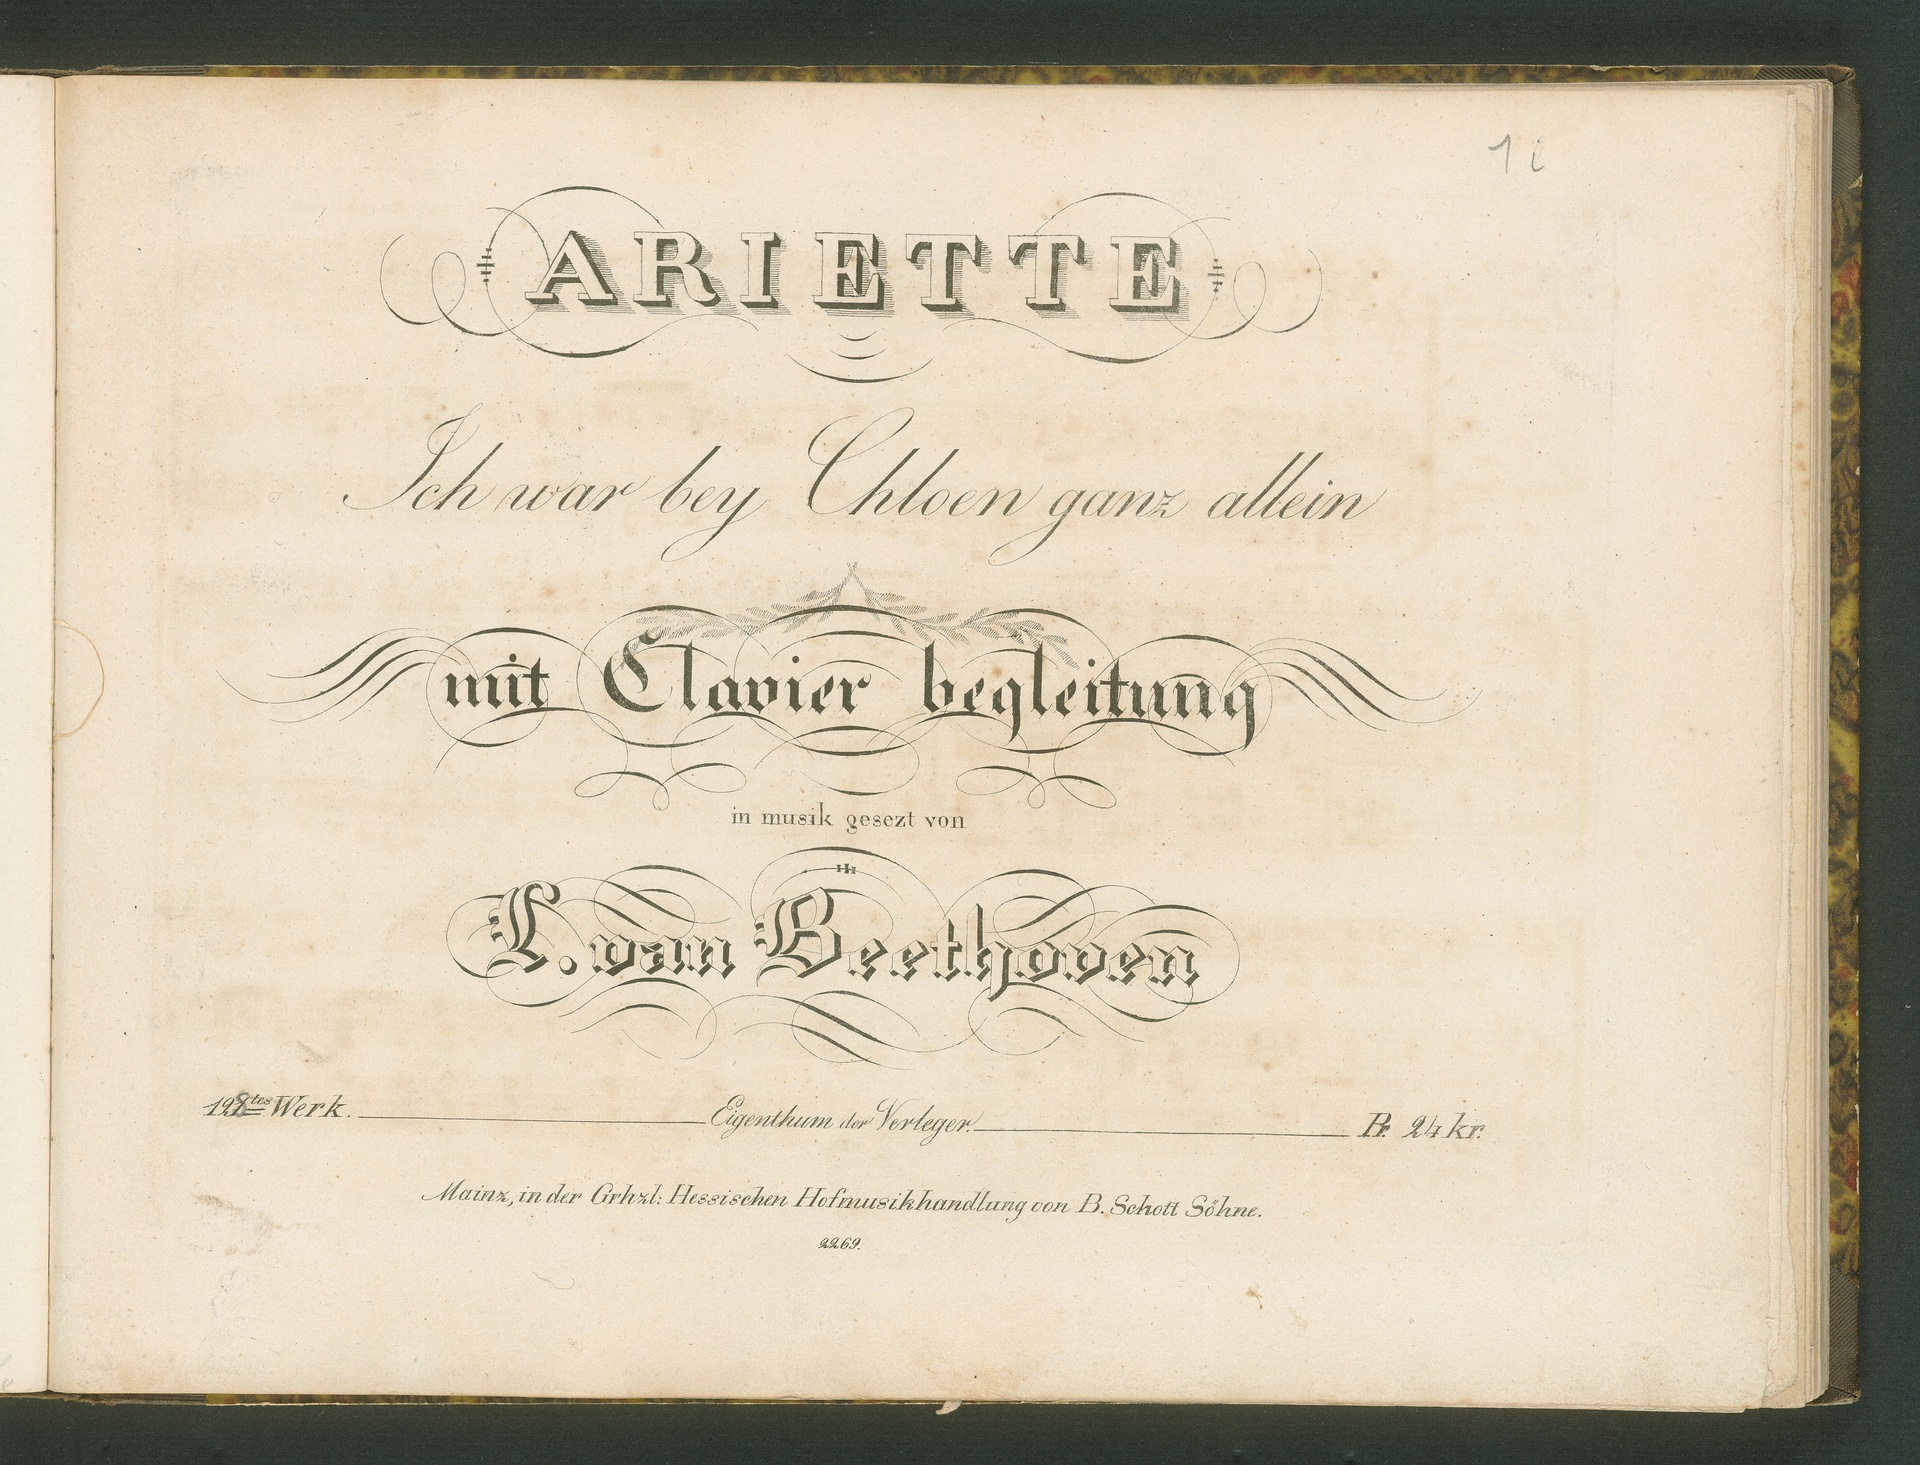 ARIETTE
Ich war bey Chloen ganz allein
mit Clavier begleitung
in musik gesezt von
L. van Beethoven
Werk. Eigenthum der Verleger. Pr. 24 kr.
Mainz, in der Grhzl: Hessischen Hofmusikhandlung von B. Schott Söhne.
2269.